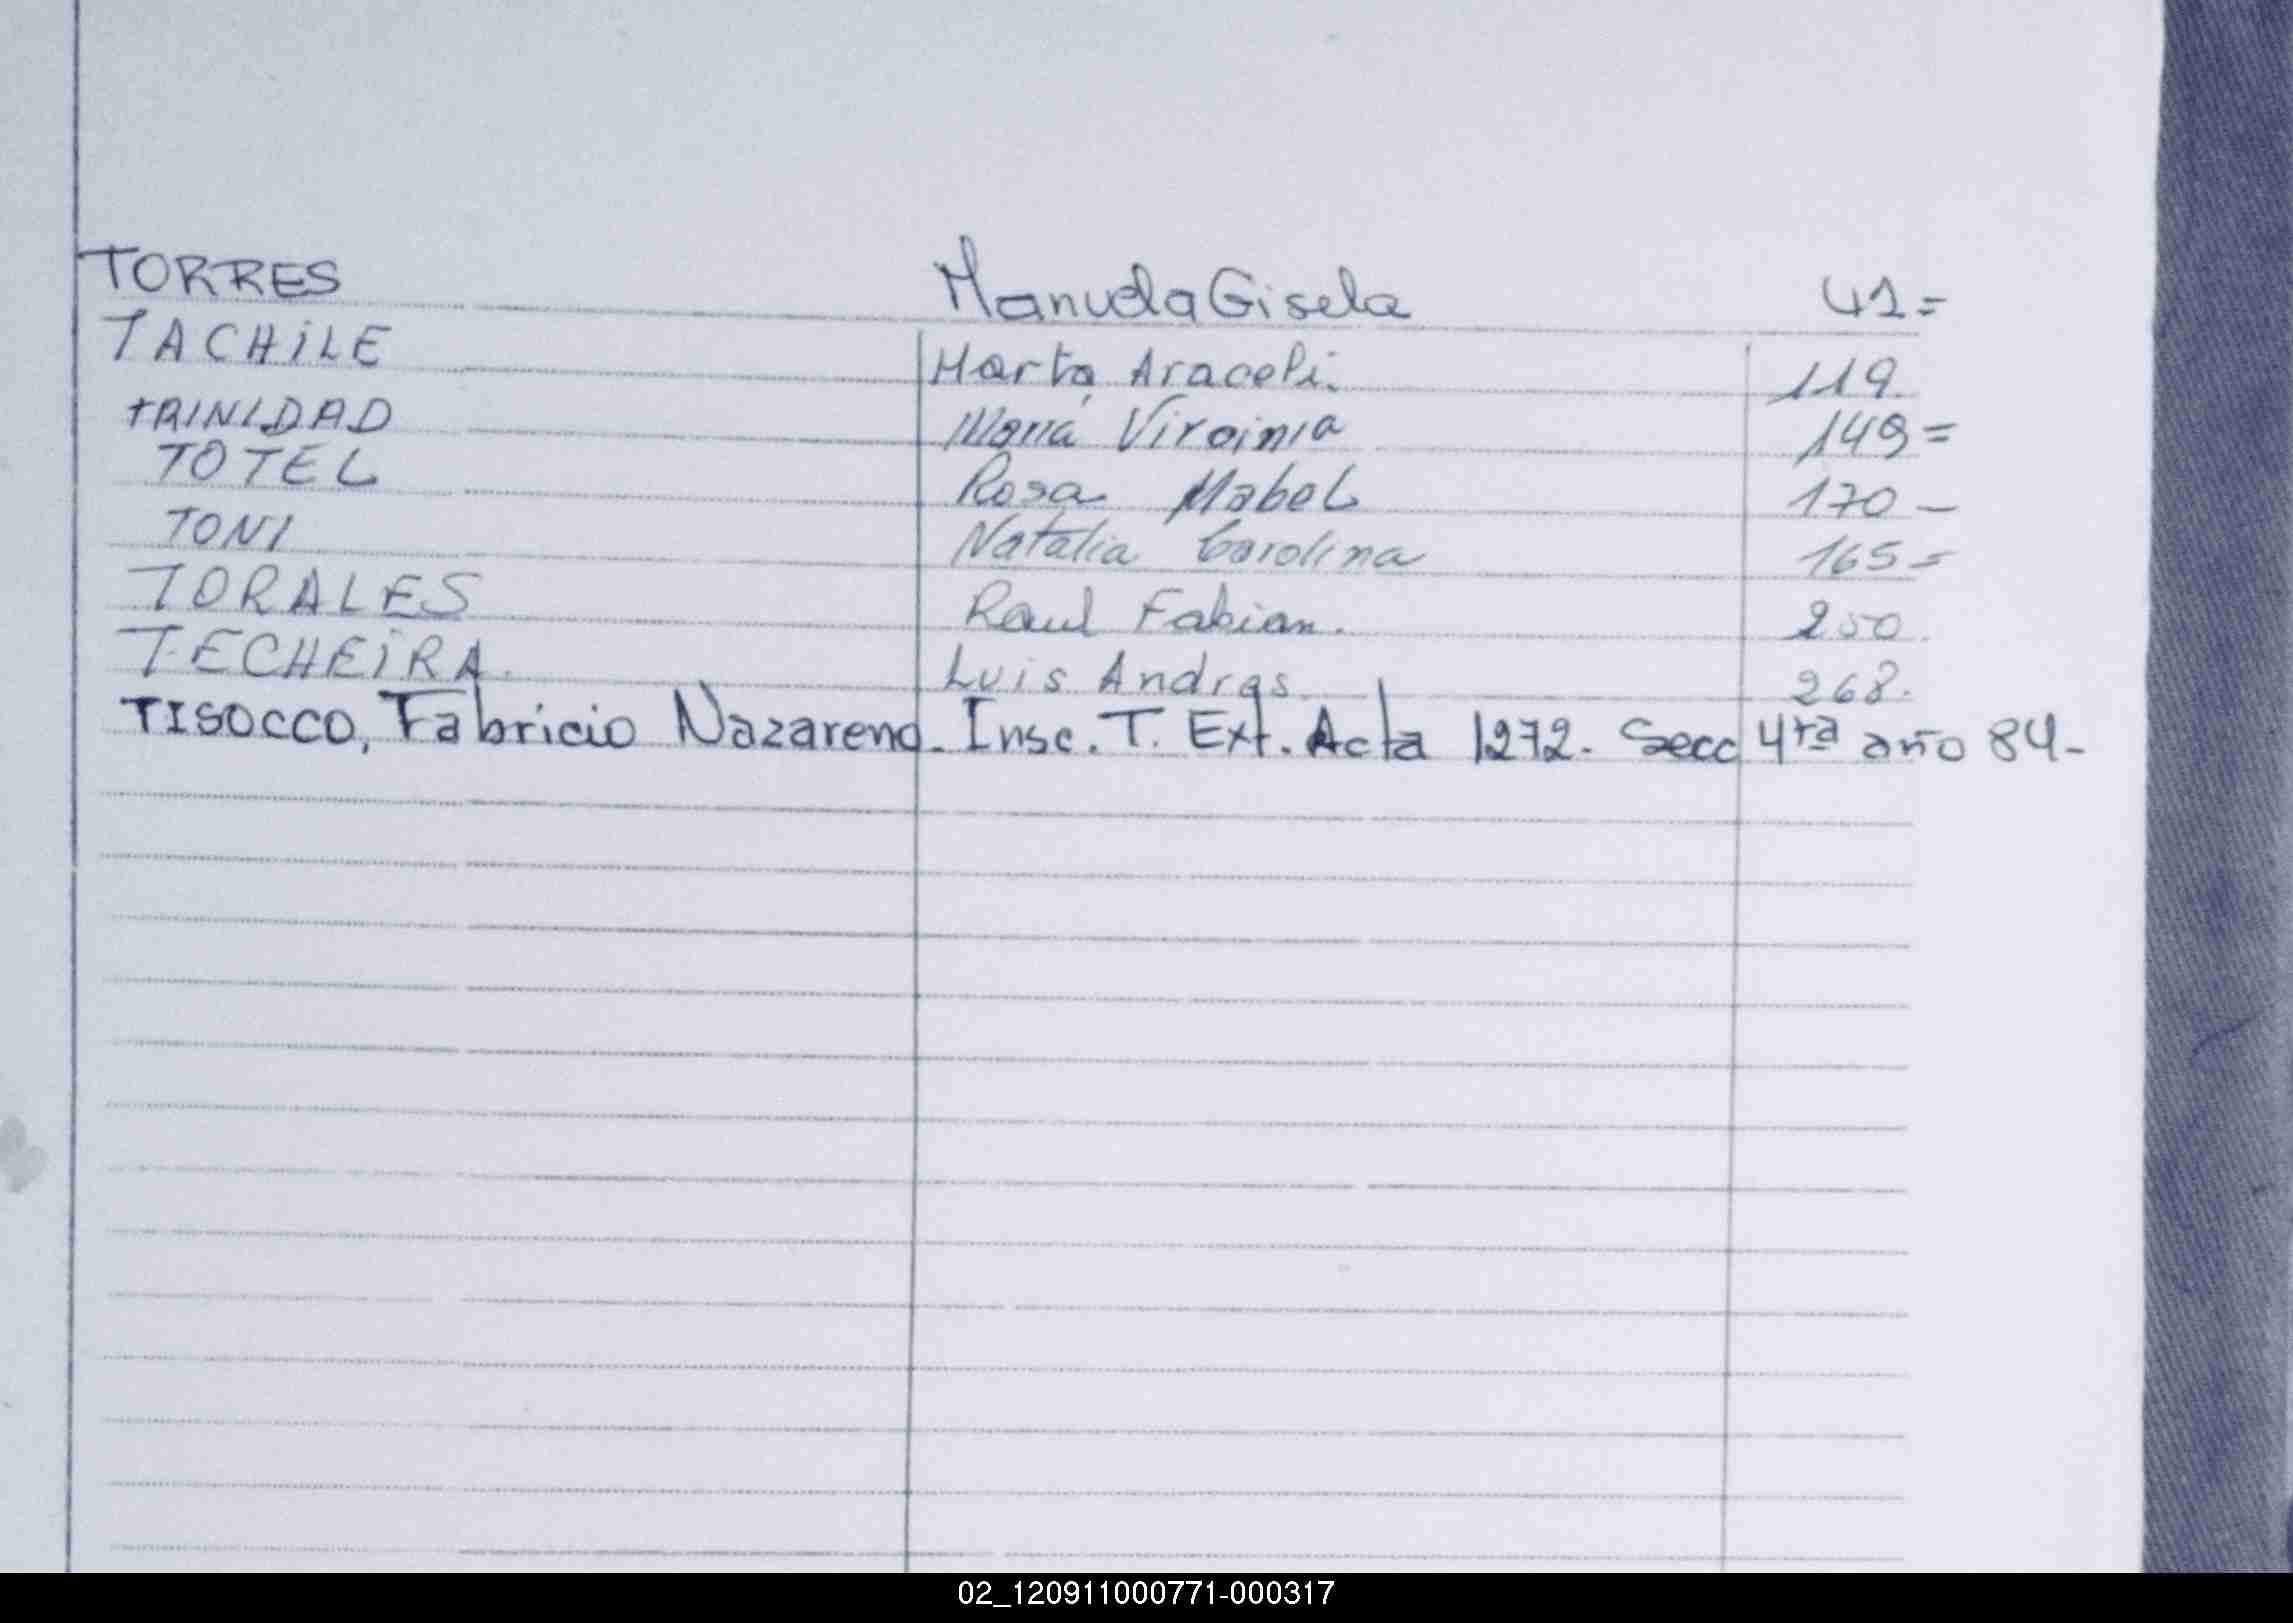 TORRES Manuela Gisela 41=
TACHILE Marta Araceli. 119.
TRINIDAD María Virginia 149=
TOTEL Rosa Mabel 170-
TONI Natalia Carolina 165=
TORALES Raul Fabian. 250.
TECHEIRA. Luis Andres 268.
TISOCCO, Fabricio Nazareno. Insc. T. Ext. Acta 1272. Secc 4ta año 84-
02_120911000771-000317